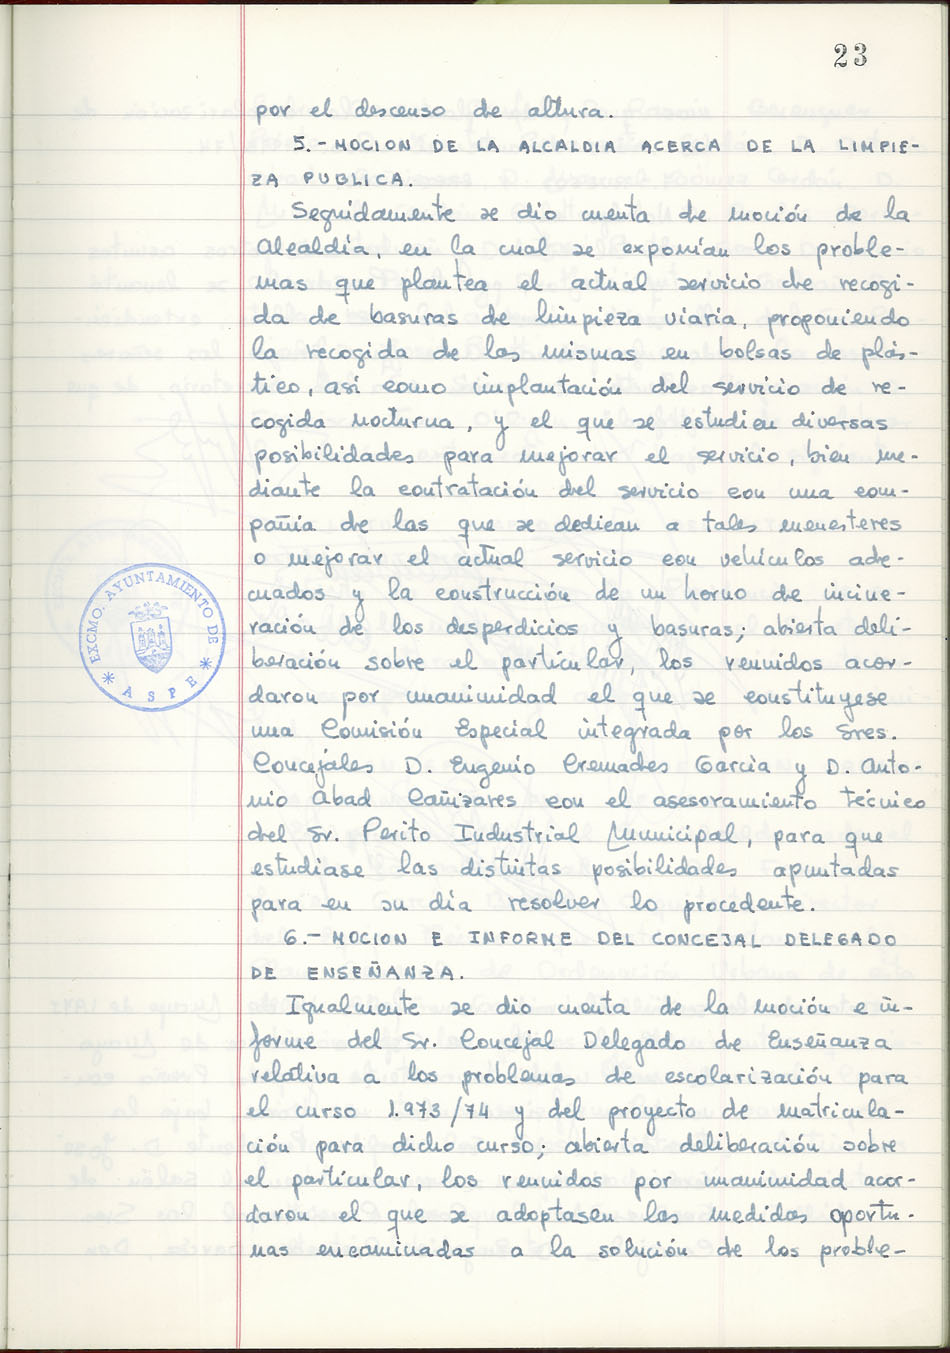 23
por el descenso de altura.
5.- MOCION DE LA ALCALDIA ACERCA DE LA LIMPIE-
ZA PUBLICA.
Seguidamente se dio cuenta de moción de la
Alcaldía, en la cual se exponían los proble-
mas que plantea el actual servicio de recogi-
da de basuras de limpieza viaria, proponiendo
la recogida de las mismas en bolsas de plás-
tico, así como implantación del servicio de re-
cogida nocturna, y el que se estudien diversas
posibilidades para mejorar el servicio, bien me-
diante la contratación del servicio con una com-
pañía de las que se dedican a tales menesteres
o mejorar el actual servicio con vehículos ade-
cuados y la construcción de un horno de incine-
ración de los desperdicios y basuras; abierta deli-
beración sobre el particular, los reunidos acor-
daron por unanimidad el que se constituyese
una Comisión Especial integrada por los Sres.
Concejales D. Eugenio Cremades García y D. Anto-
nio Abad Cañizares con el asesoramiento técnico
del Sr. Perito Industrial Municipal, para que
estudiase las distintas posibilidades apuntadas
para en su día resolver lo procedente.
6.- MOCION E INFORME DEL CONCEJAL DELEGADO
DE ENSEÑANZA.
Igualmente se dio cuenta de la moción e in-
forme del Sr. Concejal Delegado de Enseñanza
relativa a los problemas de escolarización para
el curso 1.973/74 y del proyecto de matricula-
ción para dicho curso; abierta deliberación sobre
el particular, los reunidos por unanimidad acor-
daron el que se adoptasen las medidas oportu-
nas encaminadas a la solución de los proble-
EXCMO. AYUNTAMIENTO DE
* ASPE *